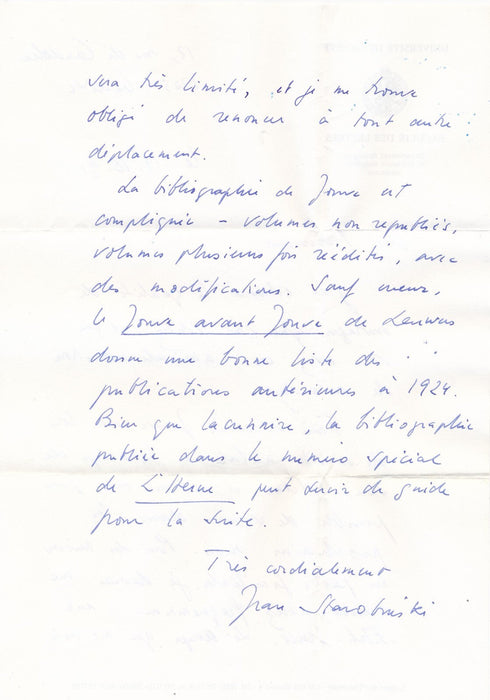 sera très limité, et je me trouve
obligé de renoncer à tout autre
déplacement.
La bibliographie de Jouve est
compliquée – volumes non republiés,
volumes plusieurs fois réédités, avec
des modifications. Sauf erreur,
le Jouve avant Jouve de Leuwers
donne une bonne liste des
publications antérieures à 1924.
Bien que lacunaire, la bibliographie
publiée dans le numéro spécial
de L'Herne peut servir de guide
pour la suite.
Très cordialement
Jean Starobinski